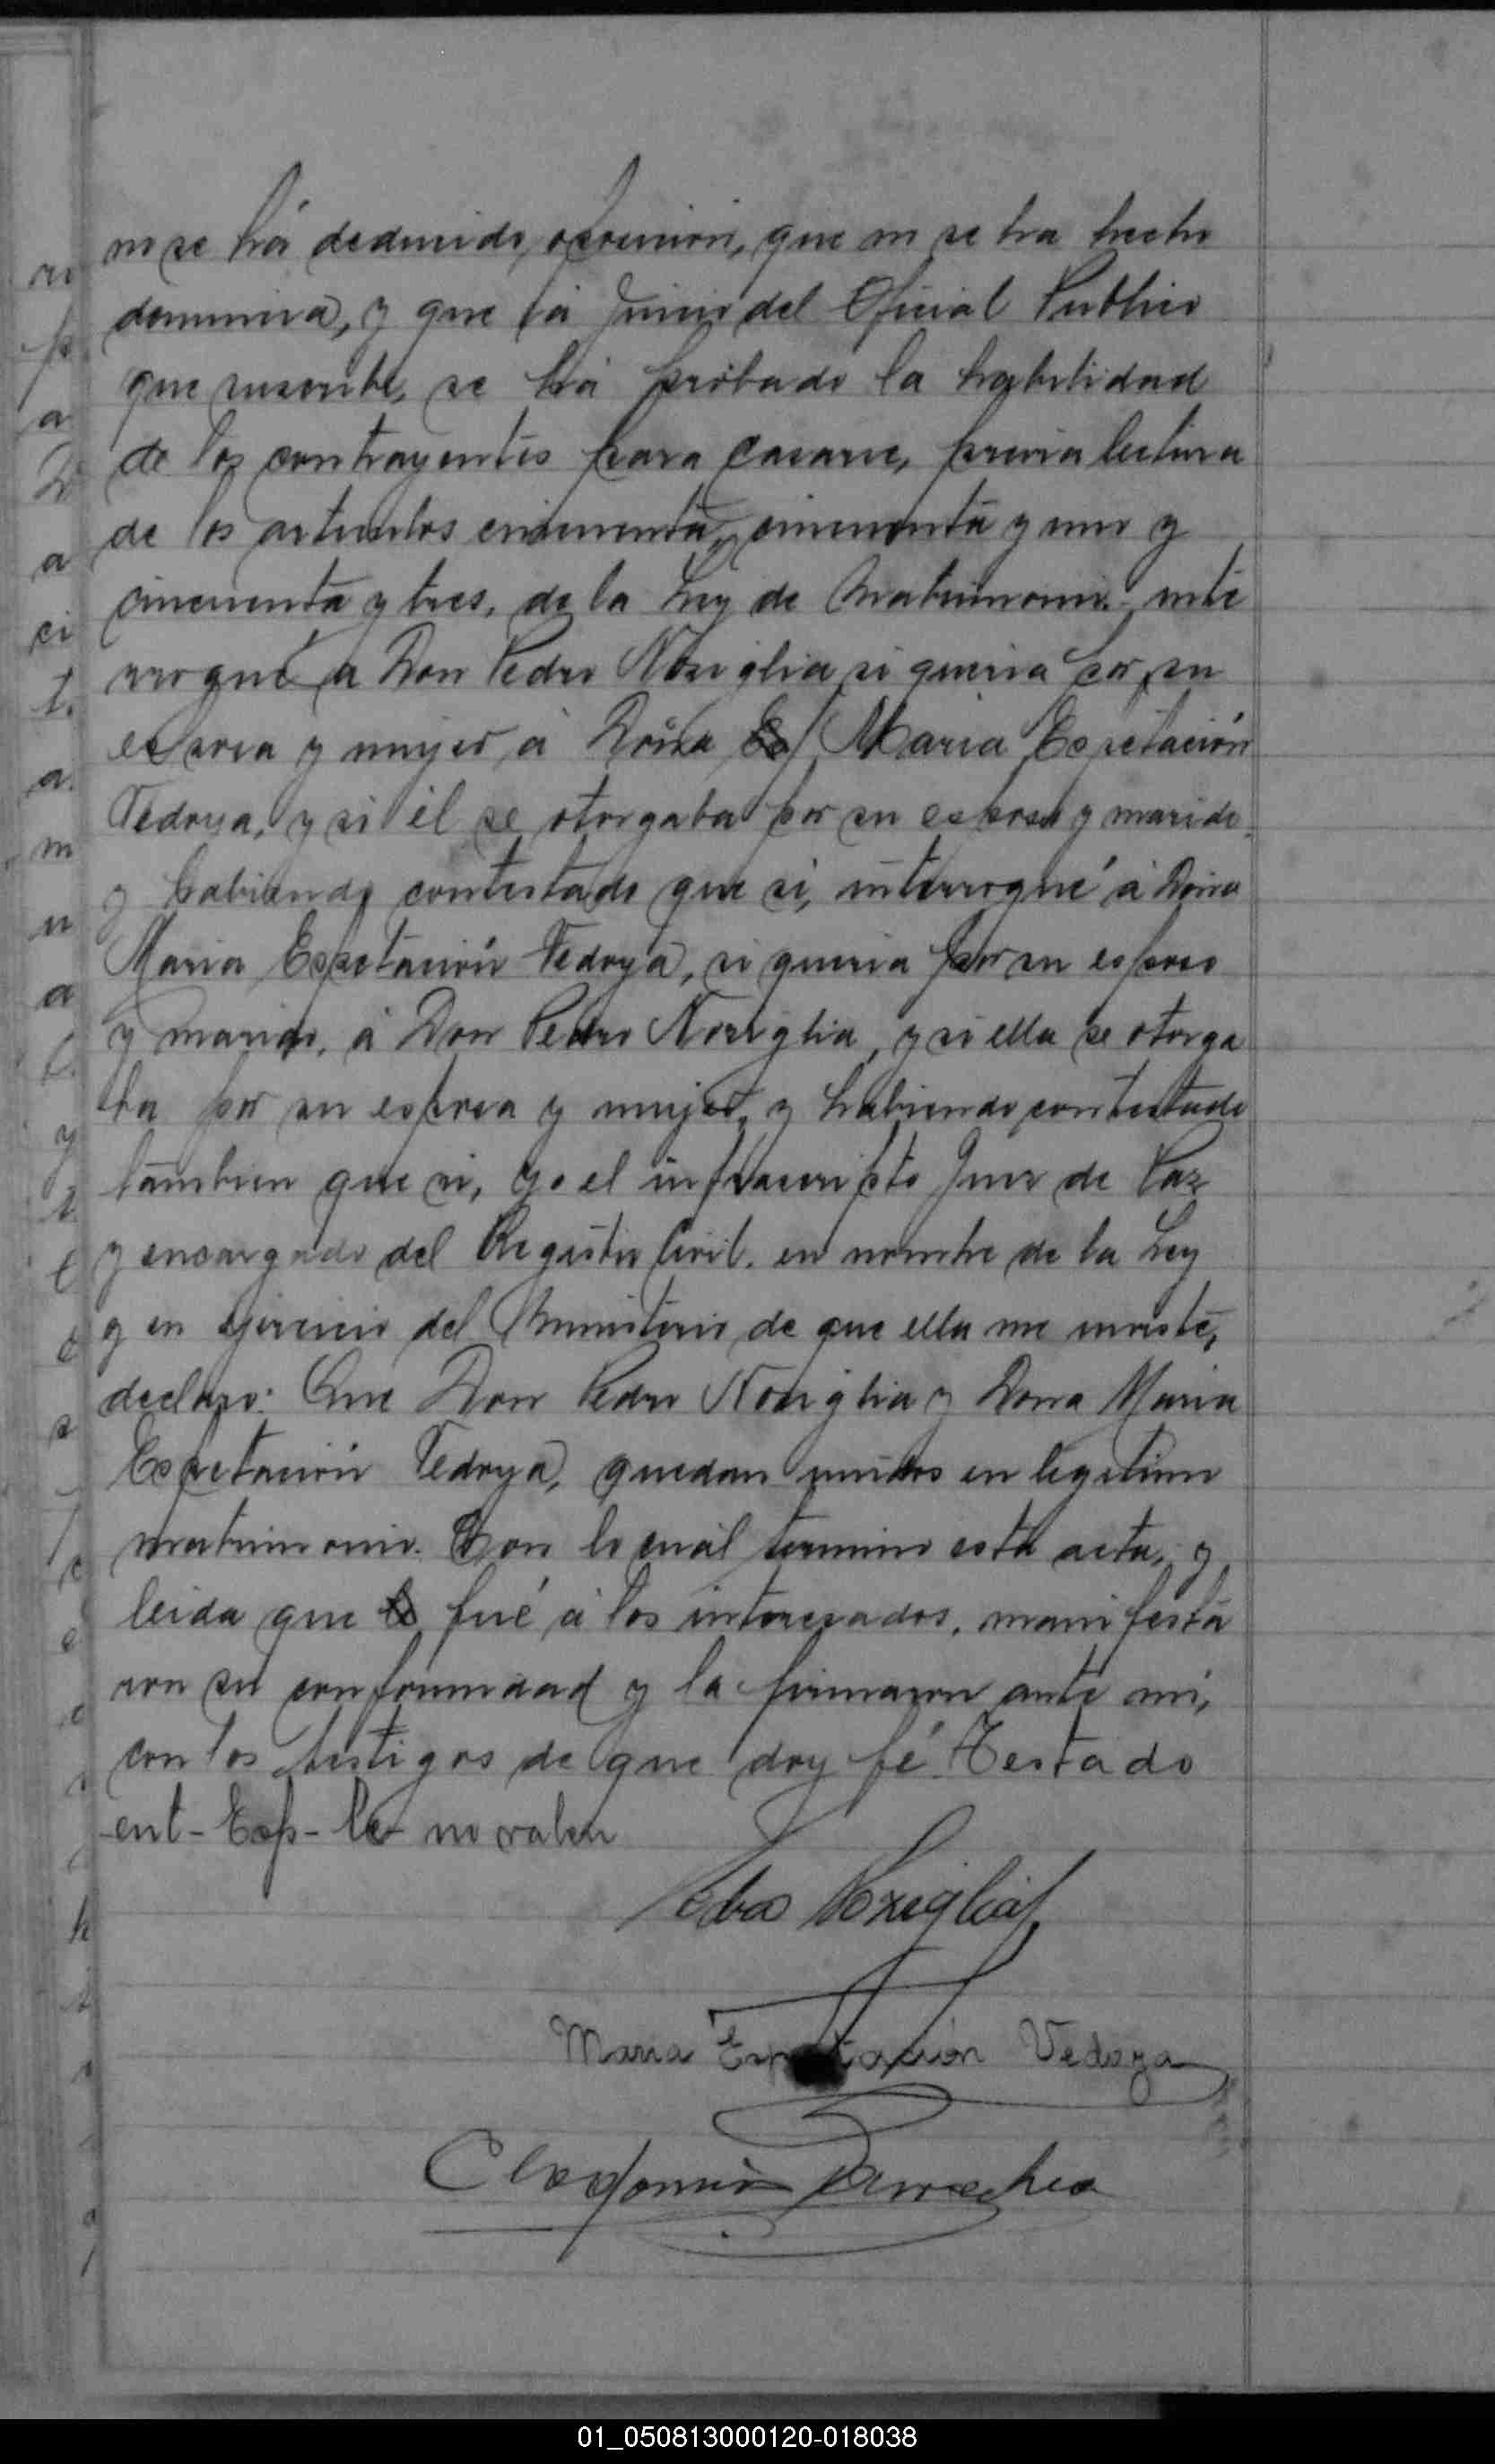 no se há deducido, oposición, que no se ha hecho
denuncia, y que á juicio del Oficial Publico
que suscribe, se há probado la habilidad
de los contrayentes para casarse, previa lectura
de los articulos cincuenta, cincuenta y uno y
cincuenta y tres, de la Ley de Matrimonio, inte
rrogué a Don Pedro Noziglia si queria por su
esposa y mujer á Doña Maria Espetación
Vedoya, y si él se otorgaba por su esposo y marido,
y habiendo contestado que si, interrogué á Doña
Maria Espetación Vedoya, si queria por su esposo
y marido, á Don Pedro Noziglia, y si ella se otorga
ba por su esposa y mujer, y habiendo contestado
tambien que si, yo el infrascripto Juez de Paz
y encargado del Registro Civil, en nombre de la Ley
y en ejercicio del Ministerio de que ella me inviste,
declaro: Que Don Pedro Noziglia y Doña Maria
Espetación Vedoya, quedan unidos en legitimo
matrimonio. Con lo cuál termino esta acta, y
leida que fué á los interesados, manifestá
ron su conformidad y la firmaron ante mi,
con los testigos de que doy fé. Testado
ent- Esp- le no valen
Pedro Noziglia
Maria Espetación Vedoya
01_050813000120-018038